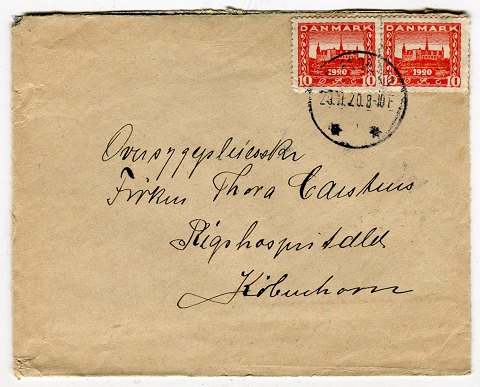 DANMARK DANMARK
10 1920 10 10 1920 10
20.8-10F
Oversygeplejeske
Frøken Thora Carstens
Rigshospitalet
København